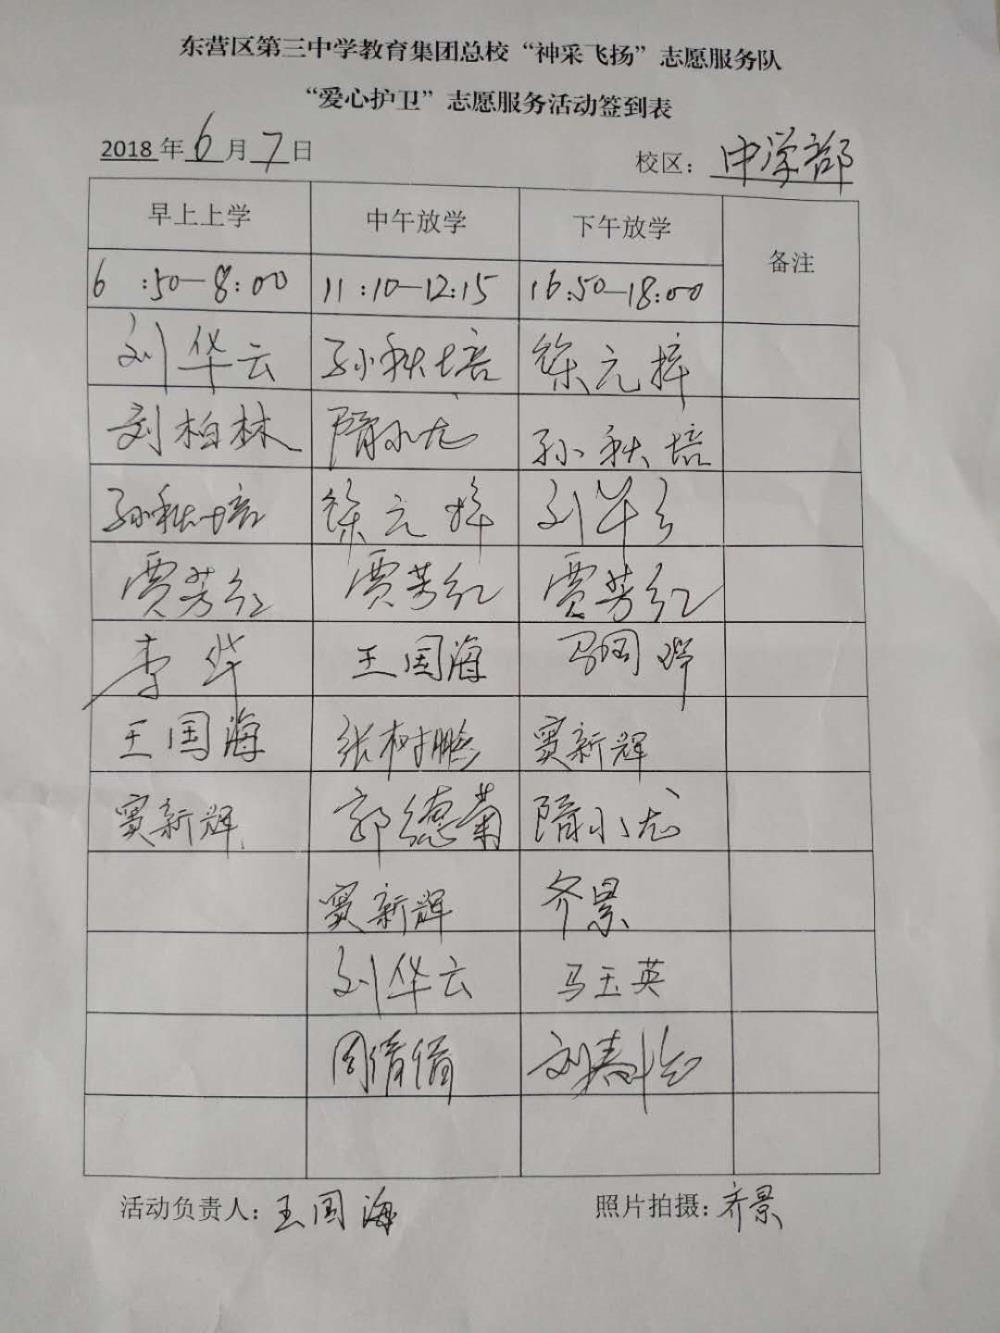 东营区第三中学教育集团总校“神采飞扬”志愿服务队
“爱心护卫”志愿服务活动签到表
2018年6月7日 校区：中学部
早上上学 中午放学 下午放学 备注
6:50—8:00 11:10—12:15 16:50—18:00
刘华云 孙秋培 徐元梓
刘柏林 隋小龙 孙秋培
孙秋培 徐元梓 刘华云
贾芳红 贾芳红 贾芳红
李华 王国海
王国海 张树鹏 窦新辉
窦新辉 郭德菊 隋小龙
窦新辉 齐景
刘华云 马玉英
周倩倩
活动负责人：王国海 照片拍摄：齐景